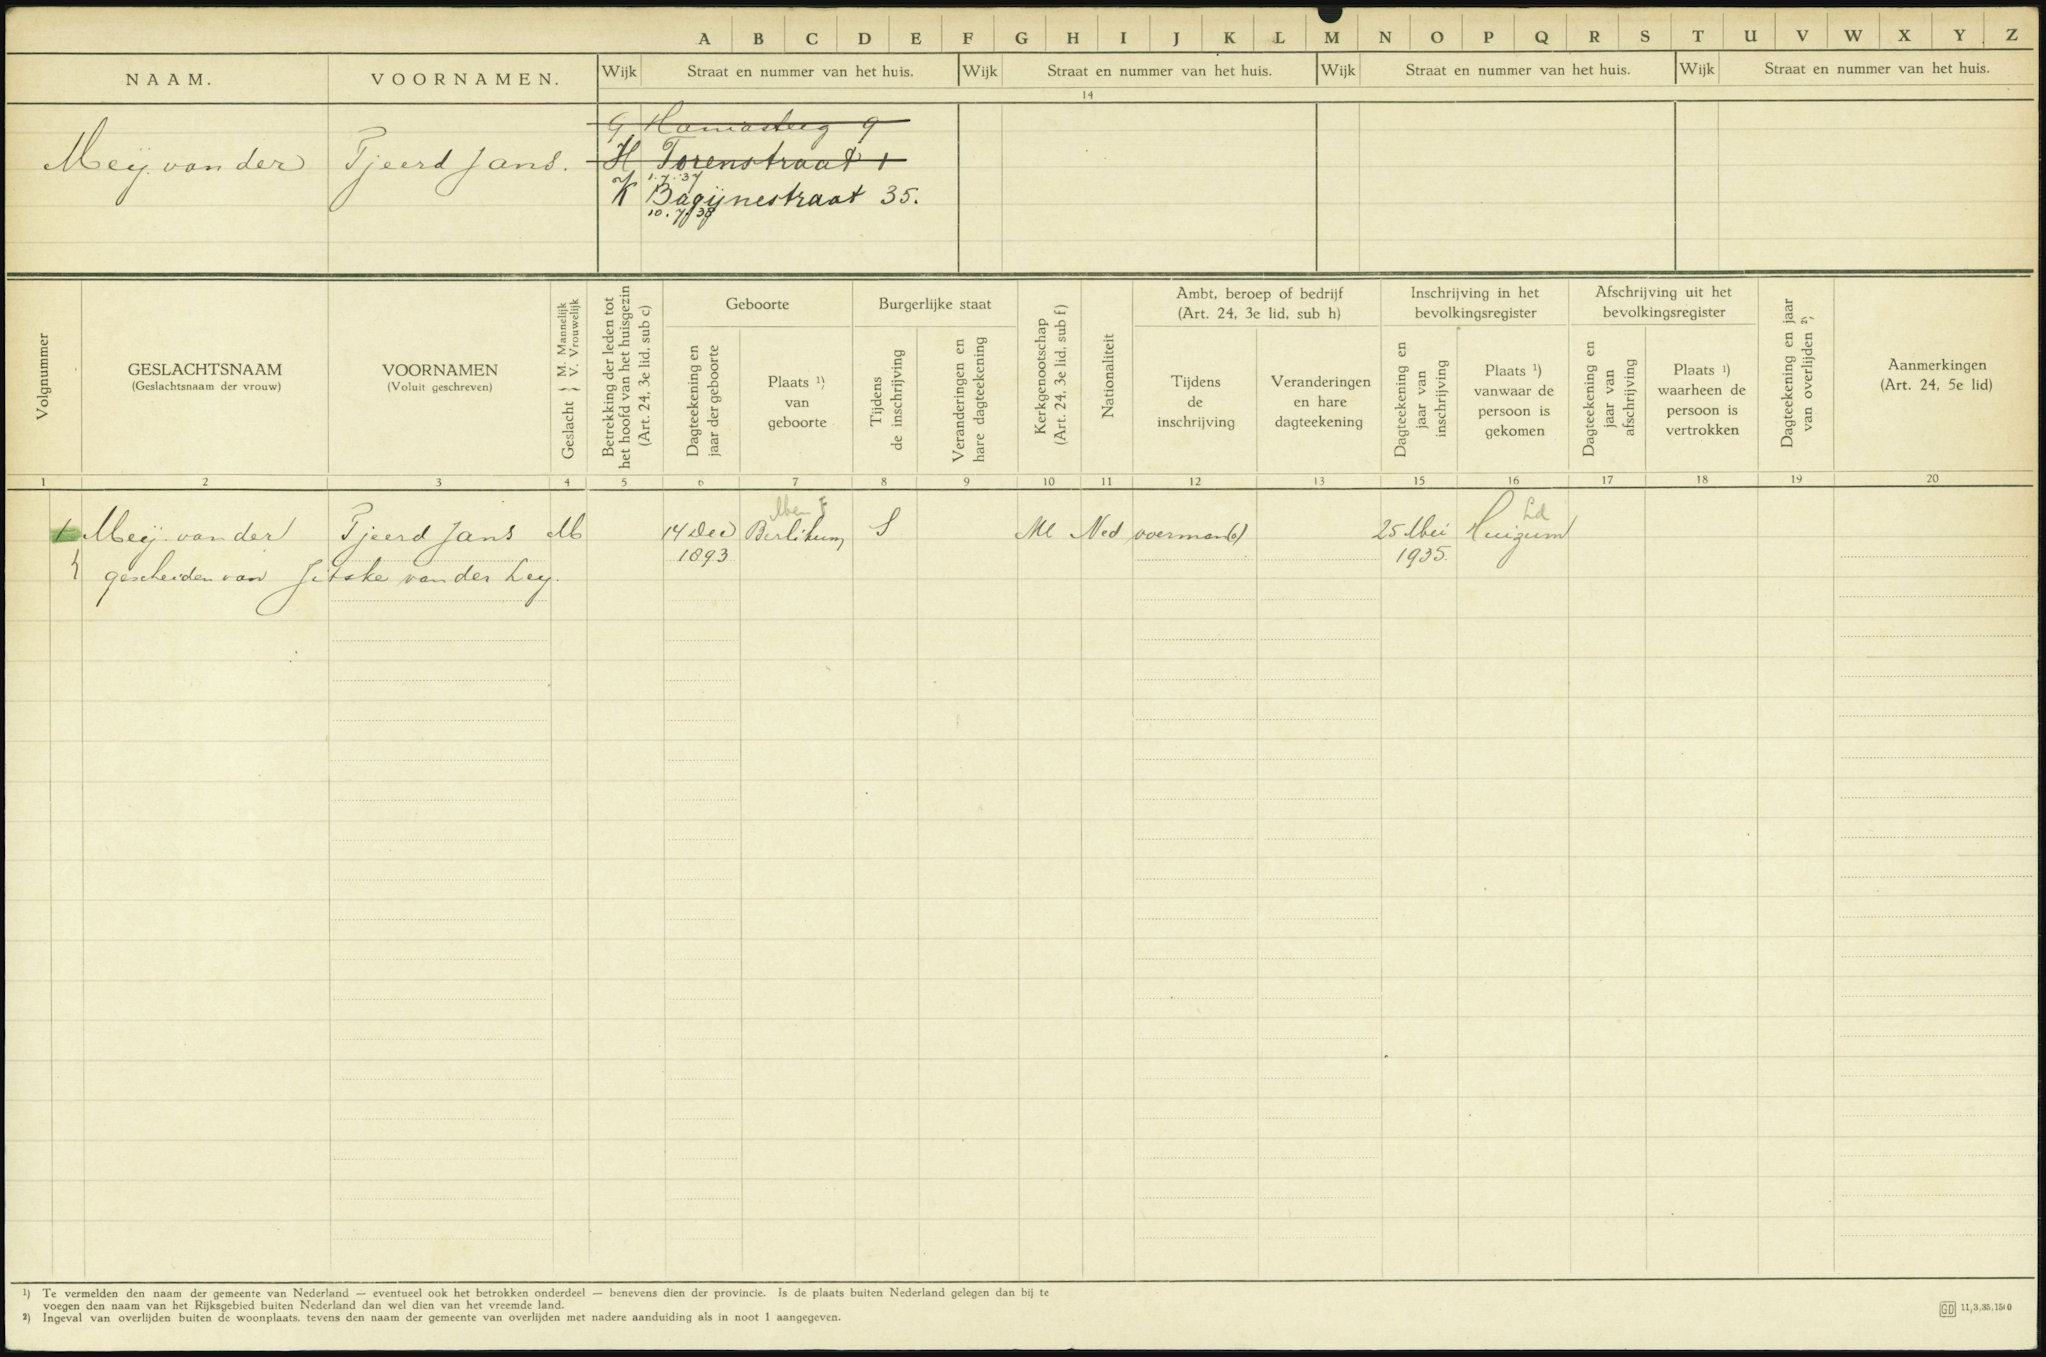 A B C D E F G H I J K L M N O P Q R S T U V W X Y Z
NAAM. VOORNAMEN. Wijk Straat en nummer van het huis. Wijk Straat en nummer van het huis. Wijk Straat en nummer van het huis. Wijk Straat en nummer van het huis.
14
G Haniasteeg 9
Meij. van der Tjeerd Jans. H Torenstraat 1
1.7.'37
K Bagijnestraat 35.
10.7.38
Volgnummer
GESLACHTSNAAM
(Geslachtsnaam der vrouw)
VOORNAMEN
(Voluit geschreven)
Geslacht { M. Mannelijk
V. Vrouwelijk
Betrekking der leden tot
het hoofd van het huisgezin
(Art. 24, 3e lid, sub c)
Geboorte
Dagteekening en
jaar der geboorte
Plaats 1)
van
geboorte
Burgerlijke staat
Tijdens
de inschrijving
Veranderingen en
hare dagteekening
Kerkgenootschap
(Art. 24, 3e lid, sub f)
Nationaliteit
Ambt, beroep of bedrijf
(Art. 24, 3e lid, sub h)
Tijdens
de
inschrijving
Veranderingen
en hare
dagteekening
Inschrijving in het
bevolkingsregister
Dagteekening en
jaar van
inschrijving
Plaats 1)
vanwaar de
persoon is
gekomen
Afschrijving uit het
bevolkingsregister
Dagteekening en
jaar van
afschrijving
Plaats 1)
waarheen de
persoon is
vertrokken
Dagteekening en jaar
van overlijden 2)
Aanmerkingen
(Art. 24, 5e lid)
1 2 3 4 5 6 7 8 9 10 11 12 13 15 16 17 18 19 20
Ld
1 Meij. van der Tjeerd Jans M 14 Dec Berlikum S Ned voerman(d) 25 Mei Huizum
1893 1935
gescheiden van Jitske van der Ley.
1) Te vermelden den naam der gemeente van Nederland — eventueel ook het betrokken onderdeel — benevens dien der provincie. Is de plaats buiten Nederland gelegen dan bij te
voegen den naam van het Rijksgebied buiten Nederland dan wel dien van het vreemde land.
2) Ingeval van overlijden buiten de woonplaats, tevens den naam der gemeente van overlijden met nadere aanduiding als in noot 1 aangegeven.
GD 11,3,35,1500